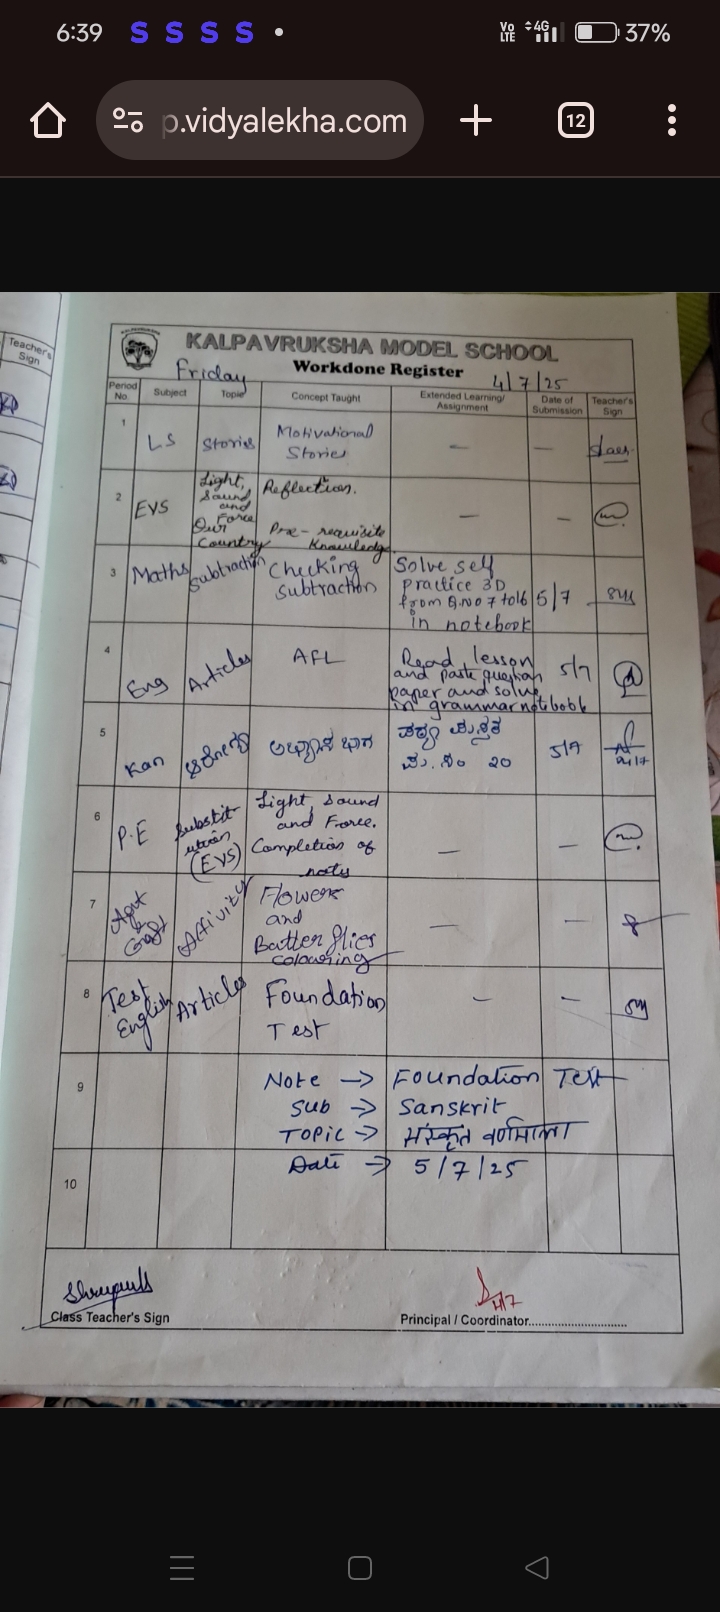 6:39 S S S S • Vo LTE 4G 37%
p.vidyalekha.com 12
Teacher's
Sign
KALPAVRUKSHA MODEL SCHOOL
Workdone Register
Friday 4/7/25
Period No. Subject Topic Concept Taught Extended Learning/ Assignment Date of Submission Teacher's Sign
1 LS Stories Motivational
Stories — —
2 EVS Light,
Sound
and
Force
Our
Country
Reflection.
Pre-requisite
Knowledge — —
3 Maths Subtraction Checking
Subtraction
Solve self
practice 3D
from Q.No 7 to 16
in notebook
5/7
4 Eng Articles AFL
Read lesson
and paste question
paper and solve
in grammar notebook
5/7
5 Kan ಅಭ್ಯಾಸ ಭಾಗ
ಪಠ್ಯ ಪುಸ್ತಕ
ಪು.ಸಂ ೨೦
5/7
6 P.E Substit-
ution
(EVS)
Light, Sound
and Force.
Completion of
notes — —
7 Art
&
Craft
Activity
Flowers
and
Butterflies
colouring — —
8 Test
English
Articles
Foundation
Test — —
9 Note → Foundation Test
Sub → Sanskrit
Topic → संस्कृत वर्णमाला
Date → 5/7/25
10
4/7
Class Teacher's Sign Principal / Coordinator